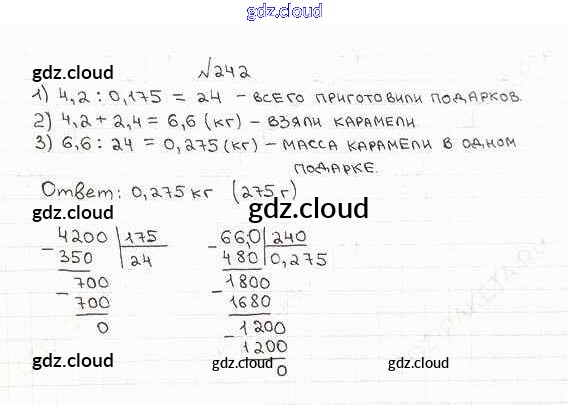 gdz.cloud
gdz.cloud
№242
gdz.cloud
1) 4,2 : 0,175 = 24 – всего приготовили подарков.
2) 4,2 + 2,4 = 6,6 (кг) – взяли карамели.
3) 6,6 : 24 = 0,275 (кг) – масса карамели в одном
подарке.
Ответ: 0,275 кг (275 г)
gdz.cloud
gdz.cloud
4200 | 175
– 350 | 24
700
– 700
0
66,0 | 240
– 480 | 0,275
1800
– 1680
1200
– 1200
0
gdz.cloud
gdz.cloud
gdz.cloud